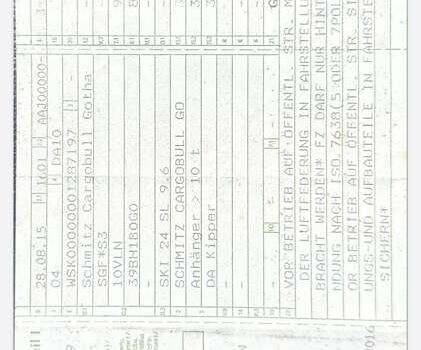 28.08.15 1601 AAJ00000-
04 DA10
WSK00000001287197
Schmitz Cargobull Gotha
SGF*S3
10VLN
39BH1B0G0
-
SKI 24 SL 9.6
SCHMITZ CARGOBULL GO
Anhänger > 10 t
DA Kipper
-
-
-
VOR BETRIEB AUF ÖFFENTL. STR. M
DER LUFTFEDERUNG IN FAHRSTELLU
BRACHT WERDEN* FZ DARF NUR HINT
NDUNG NACH ISO 7638(5 ODER 7POL
OR BETRIEB AUF ÖFFENTL. STR. SI
UNGS-UND AUFBAUTEILE IN FAHRSTE
SICHERN*